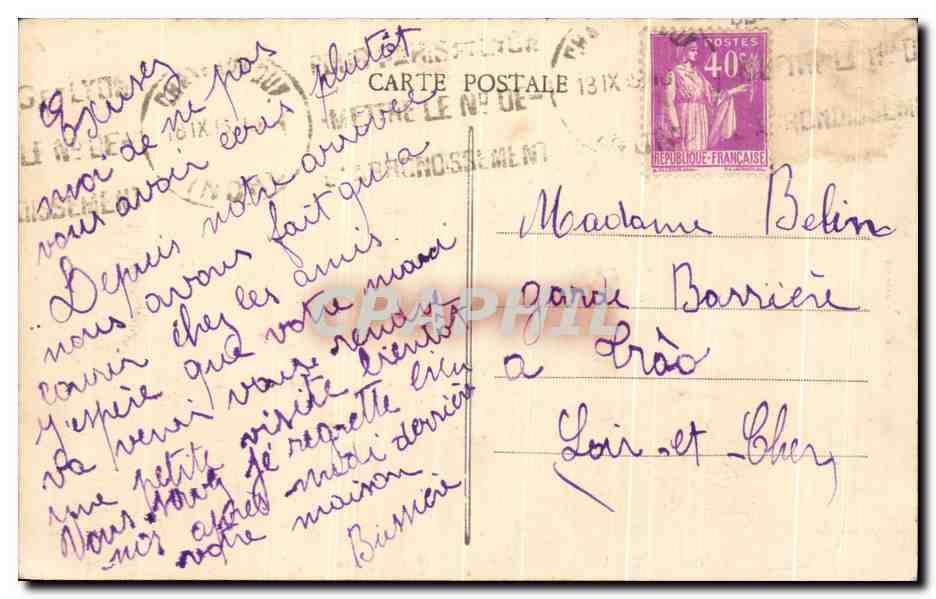 CARTE POSTALE
POSTES
40c
REPUBLIQUE-FRANÇAISE
METTRE LE No DE
L'ARRONDISSEMENT
18 IX
13 IX
Excuses
moi de ne pas
vous avoir écris plutôt
Depuis notre arrivée
nous avons fait que
courir chez les amis.
J'espère que votre mari
va venir vous rendre
une petite visite bientôt
Vous savez je regrette
mes après-midi derrière
votre maison
Bussière
Madame Belin
garde Barrière
a Trôo
Loir-et-Cher
CPAPHIL